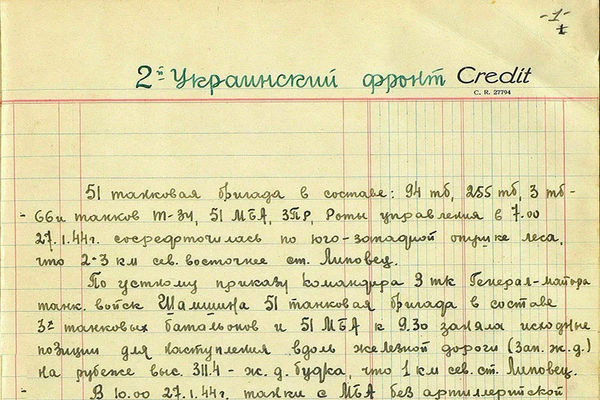 -1-
1
2й Украинский фронт Credit
C. R. 27794
51 танковая бригада в составе: 94 тб, 255 тб, 3 тб-
- 66и танков Т-34, 51 МБА, ЗПР, Роты управления в 7.00
27.1.44г. сосредоточилась по юго-западной опушке леса,
что 2-3 км сев. восточнее ст. Липовец.
По устному приказу командира 3 тк Генерал-майора
танк. войск Шамшина 51 танковая бригада в составе
3х танковых батальонов и 51 МБА к 9.30 заняла исходные
позиции для наступления вдоль железной дороги (зап. ж.д.)
на рубеже выс. 311.4 - ж. д. будка, что 1 км сев. ст. Липовец.
- В 10.00 27.1.44г. танки с МБА без артиллерийской